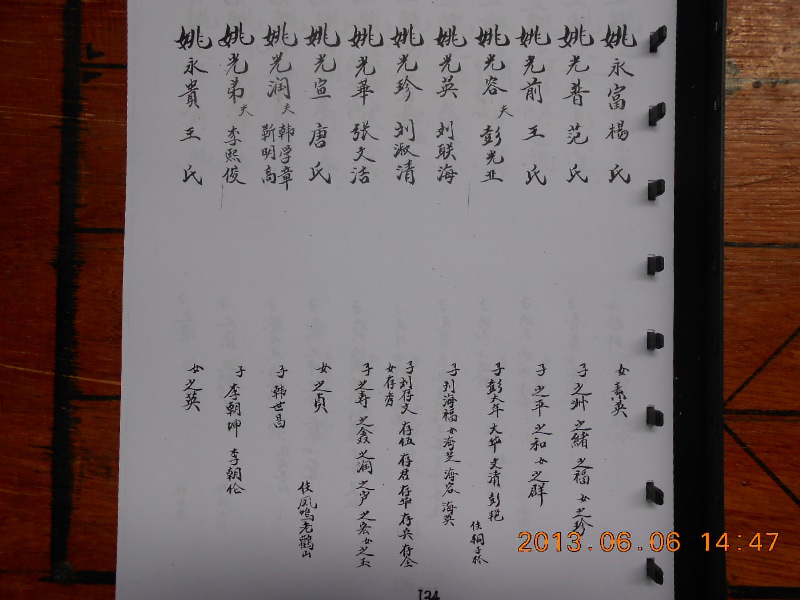 姚永富 楊氏
女素英
姚光普 范氏
子之州 之緒 之福 女之珍
姚光前 王氏
子之平 之和 女之群
姚光容 夫 彭光亚
子彭大年 大华 文清 彭艳
住桐子林
姚光英 刘联海
子刘海福 女海芝 海容 海英
姚光珍 刘淑清
子刘存文 存伍 存君 存华 存兵 存全
女存秀
姚光華 张文洁
子之寿 之鑫 之润 之 之宏 女之玉
姚光宣 唐氏
女之貞
住凤鸣老鹳山
姚光润 夫 韩学章
靳明高
子韩世昌
姚光弟 夫 李熙俊
子李朝坤 李朝伦
姚永貴 王氏
女之英
134
2013.06.06 14:47